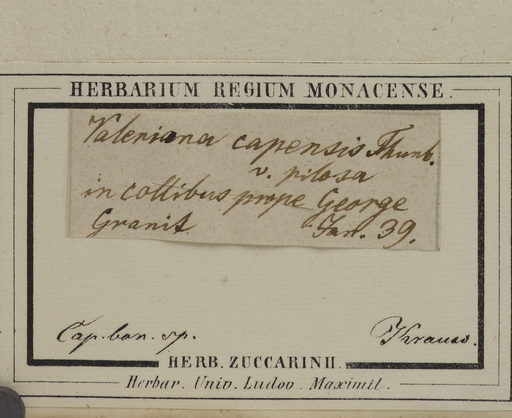 HERBARIUM REGIUM MONACENSE.
Valeriana capensis Thunb.
v. pilosa
in collibus prope George
Granit Jan. 39.
Cap. bon. sp. Krauss.
HERB. ZUCCARINII.
Herbar. Univ. Ludov. Maximil.